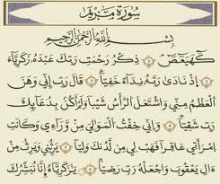 سُورَةُ مَرْيَمَ
بِسْمِ ٱللَّهِ ٱلرَّحْمَٰنِ ٱلرَّحِيمِ
كٓهيعٓصٓ ذِكْرُ رَحْمَتِ رَبِّكَ عَبْدَهُۥ زَكَرِيَّآ
إِذْ نَادَىٰ رَبَّهُۥ نِدَآءً خَفِيًّا قَالَ رَبِّ إِنِّى وَهَنَ
ٱلْعَظْمُ مِنِّى وَٱشْتَعَلَ ٱلرَّأْسُ شَيْبًا وَلَمْ أَكُنۢ بِدُعَآئِكَ
رَبِّ شَقِيًّا وَإِنِّى خِفْتُ ٱلْمَوَٰلِىَ مِن وَرَآءِى وَكَانَتِ
ٱمْرَأَتِى عَاقِرًا فَهَبْ لِى مِن لَّدُنكَ وَلِيًّا يَرِثُنِى وَيَرِثُ مِنْ
ءَالِ يَعْقُوبَ وَٱجْعَلْهُ رَبِّ رَضِيًّا يَٰزَكَرِيَّآ إِنَّا نُبَشِّرُكَ